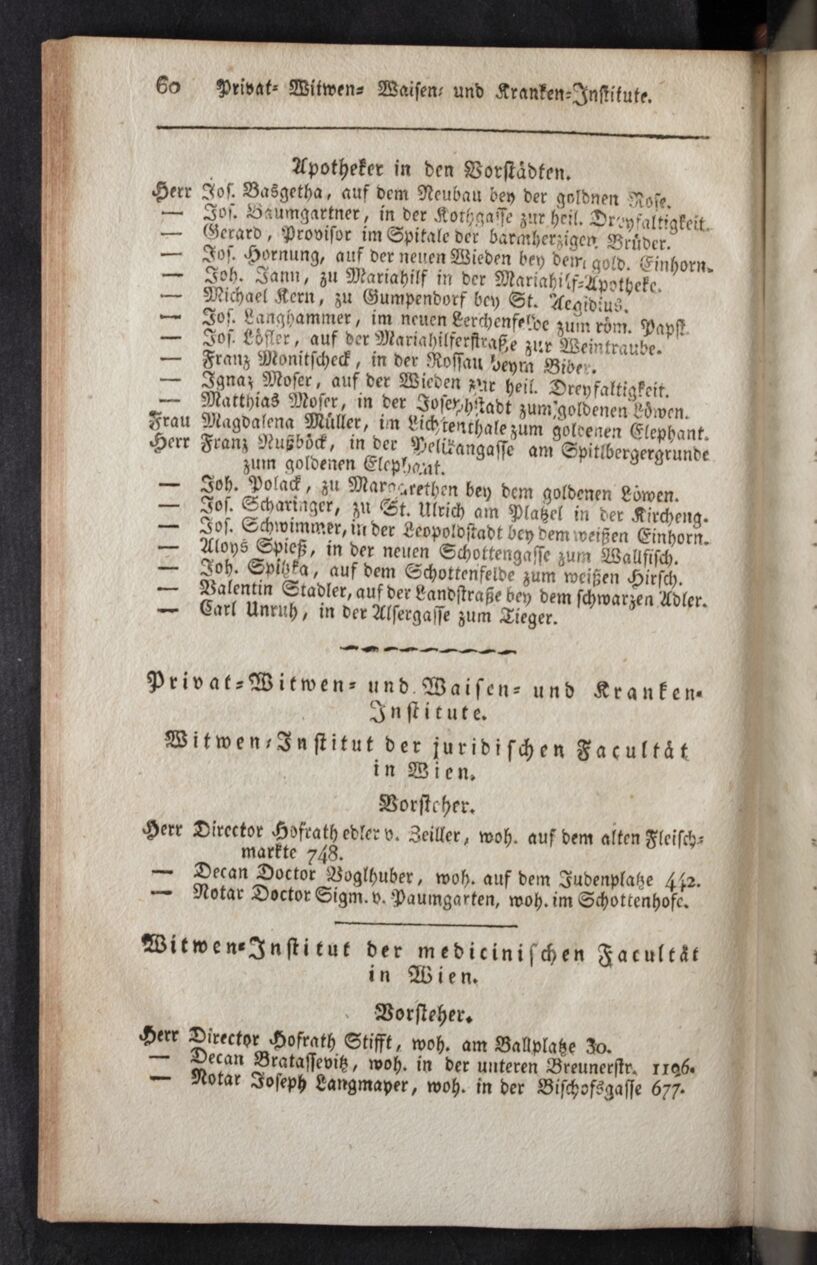 60 Privat- Witwen- Waisen- und Kranken-Institute.
Apotheker in den Vorstädten.
Herr Jos. Basgetha, auf dem Neubau bey der goldnen Rose.
— Jos. Baumgartner, in der Kothgasse zur heil. Dreyfaltigkeit.
— Gerard, Provisor im Spitale der barmherzigen Brüder.
— Jos. Hornung, auf der neuen Wieden bey dem gold. Einhorn.
— Joh. Jann, zu Mariahilf in der Mariahilf-Apotheke.
— Michael Kern, zu Gumpendorf bey St. Aegidius.
— Jos. Langhammer, im neuen Lerchenfelde zum röm. Papst.
— Jos. Löfler, auf der Mariahilferstraße zur Weintraube.
— Franz Monitscheck, in der Rossau beym Biber.
— Ignaz Moser, auf der Wieden zur heil. Dreyfaltigkeit.
— Matthias Moser, in der Josephstadt zum goldenen Löwen.
Frau Magdalena Müller, im Lichtenthale zum goldenen Elephant.
Herr Franz Nußböck, in der Pelikangasse am Spitlbergergrunde
zum goldenen Elephant.
— Joh. Polack, zu Margarethen bey dem goldenen Löwen.
— Jos. Scharinger, zu St. Ulrich am Platzel in der Kircheng.
— Jos. Schwimmer, in der Leopoldstadt bey dem weißen Einhorn.
— Aloys Spieß, in der neuen Schottengasse zum Wallfisch.
— Joh. Spitzka, auf dem Schottenfelde zum weißen Hirsch.
— Valentin Stadler, auf der Landstraße bey dem schwarzen Adler.
— Carl Unruh, in der Alsergasse zum Tieger.
Privat-Witwen- und Waisen- und Kranken-
Institute.
Witwen-Institut der juridischen Facultät
in Wien.
Vorsteher.
Herr Director Hofrath edler v. Zeiller, woh. auf dem alten Fleisch-
markte 748.
— Decan Doctor Voglhuber, woh. auf dem Judenplatze 442.
— Notar Doctor Sigm. v. Paumgarten, woh. im Schottenhofe.
Witwen-Institut der medicinischen Facultät
in Wien.
Vorsteher.
Herr Director Hofrath Stifft, woh. am Ballplatze 30.
— Decan Bratassevitz, woh. in der unteren Breunerstr. 1196.
— Notar Joseph Langmayer, woh. in der Bischofsgasse 677.